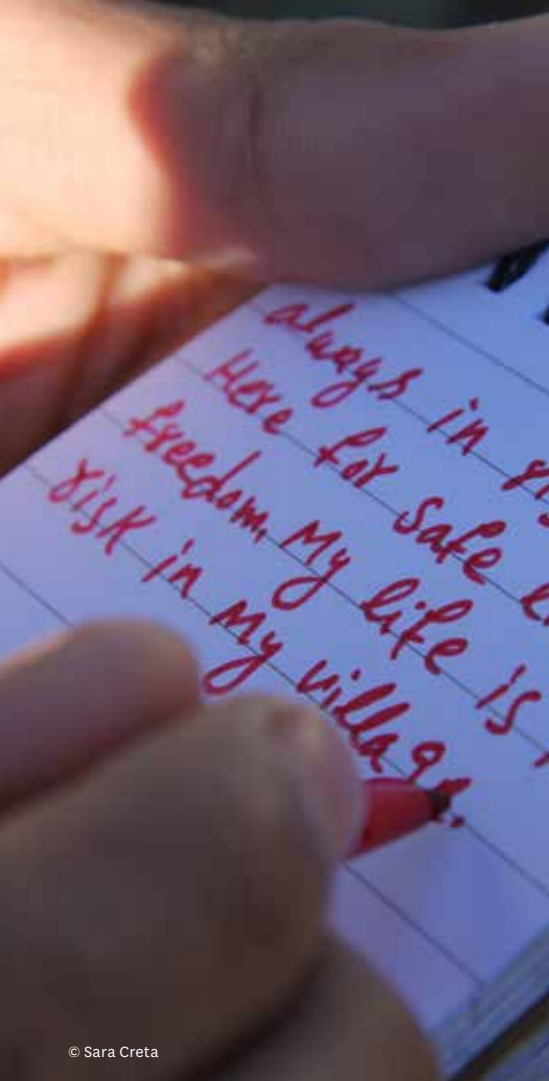 always in
Here for safe
freedom, my life is
risk in my village.
© Sara Creta